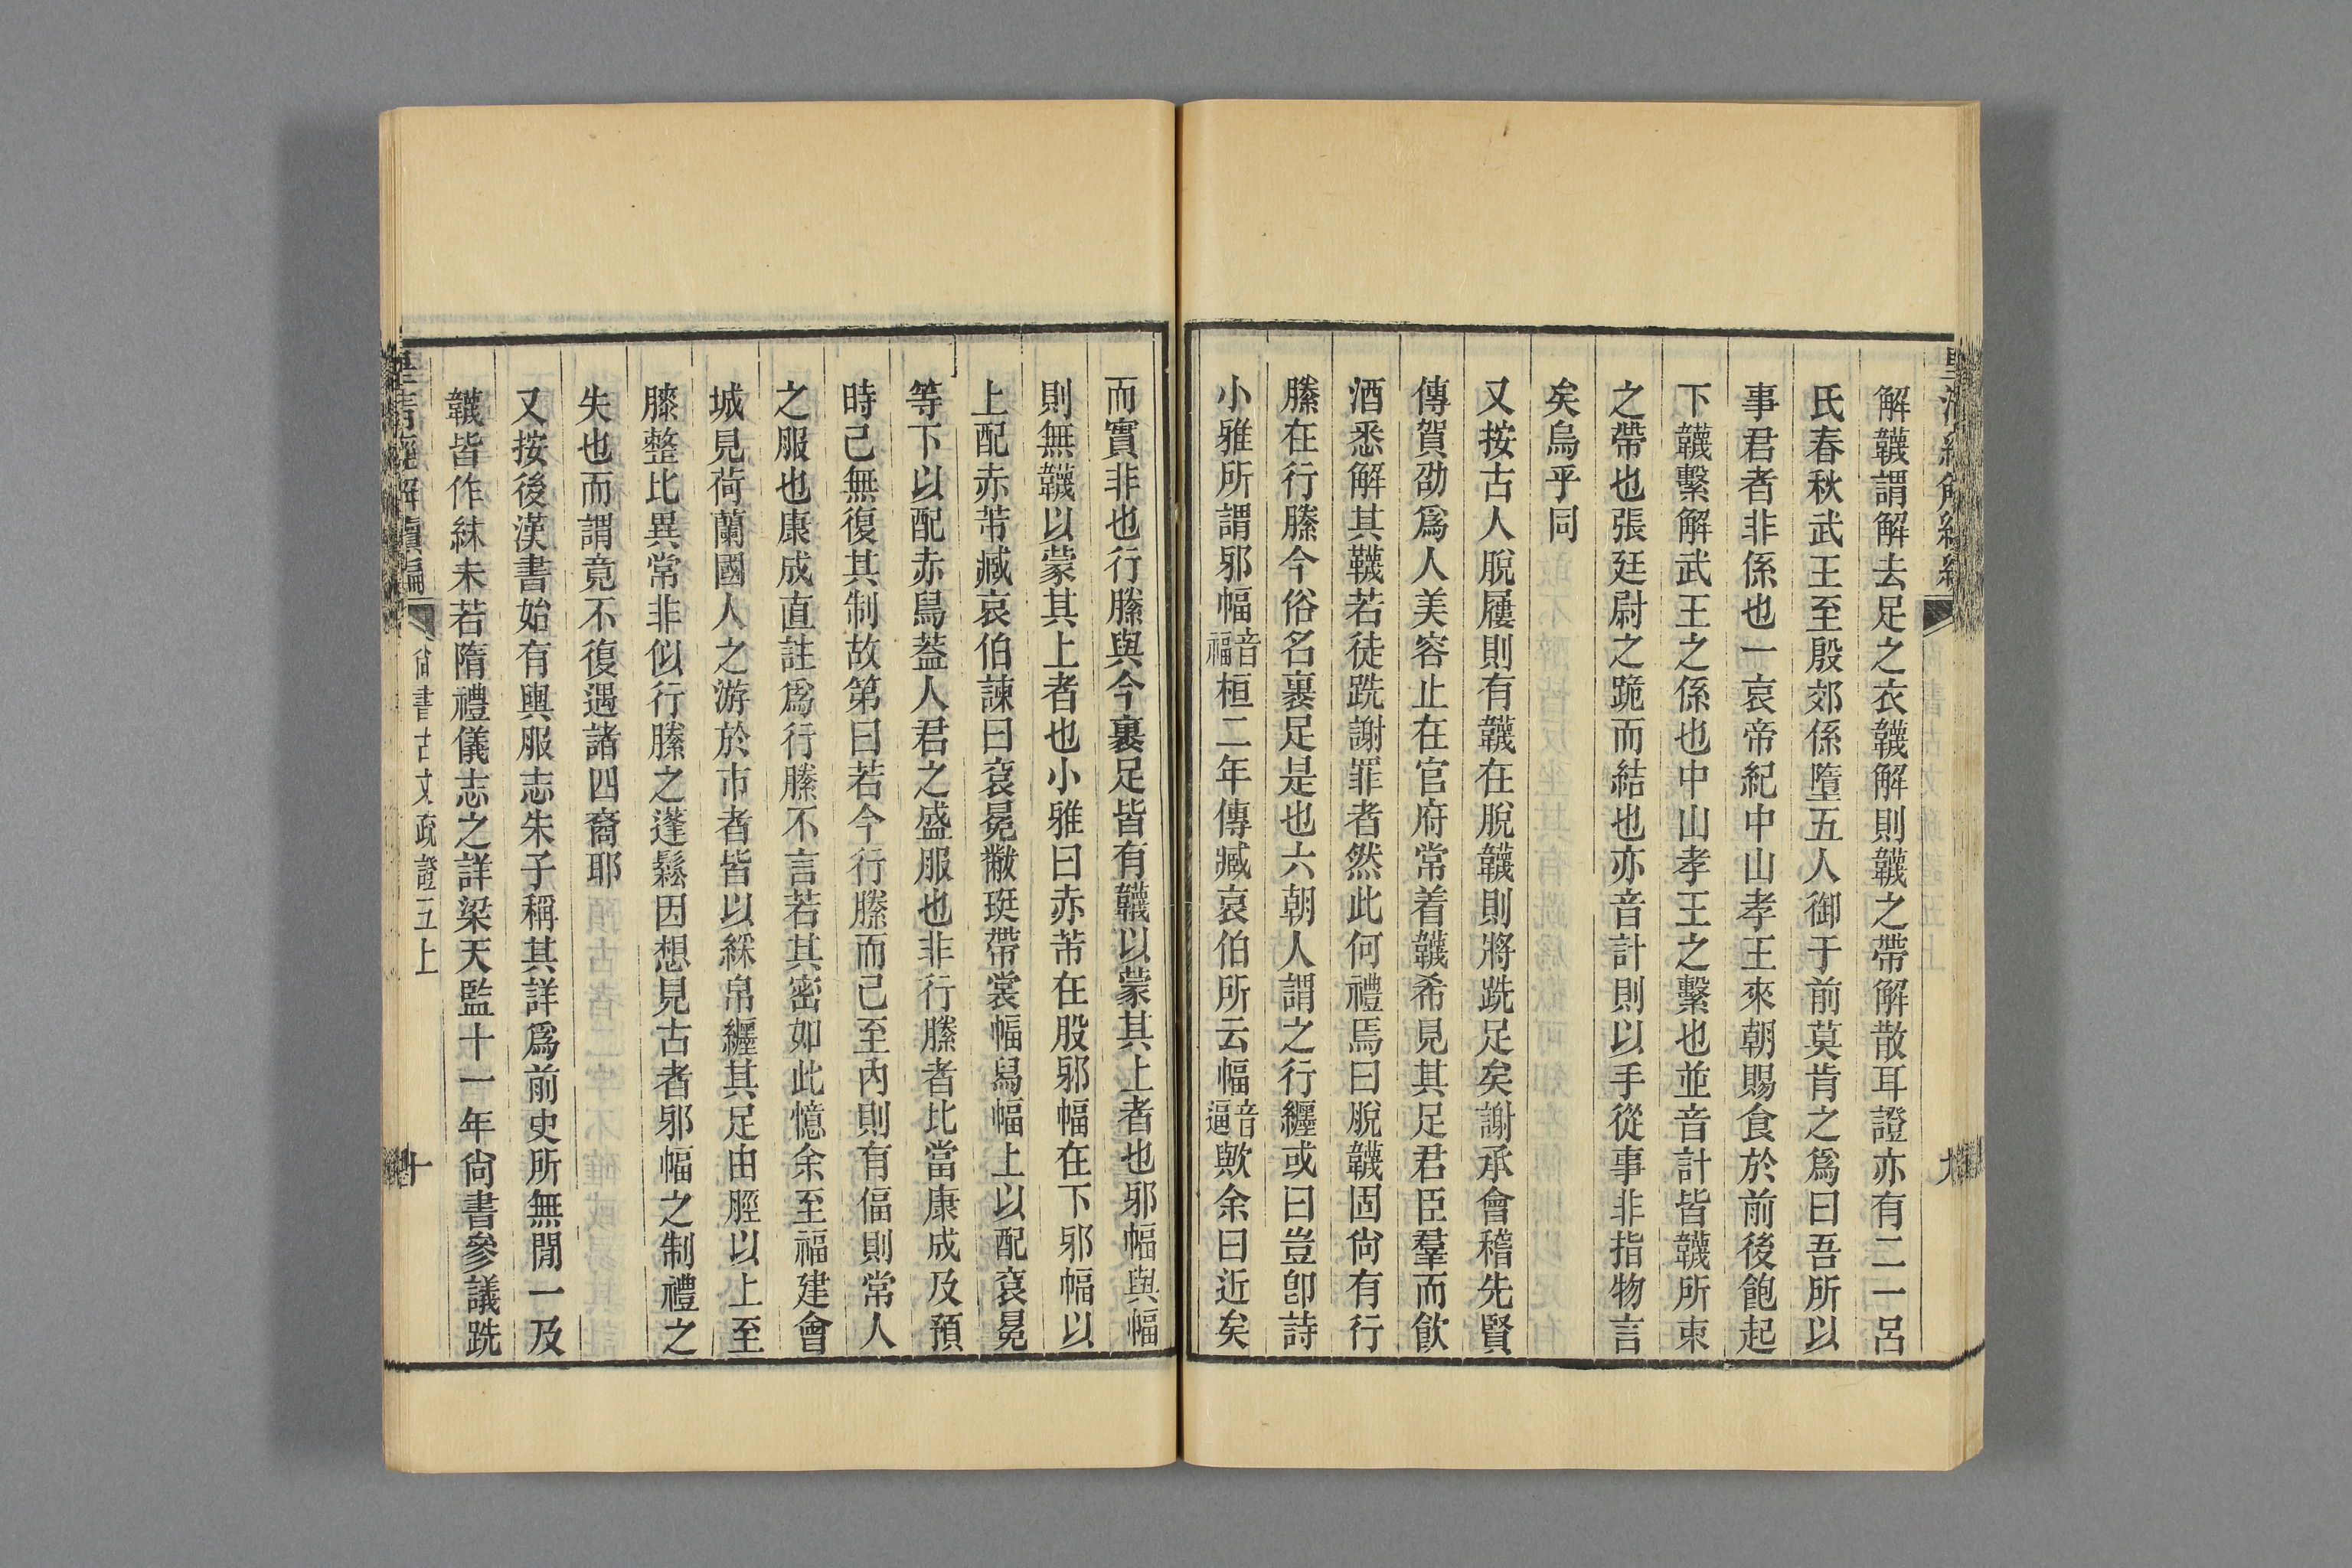 解韈謂解去足之衣韈解則韈之帶解散耳證亦有二一呂
氏春秋武王至殷郊係墮五人御于前莫肯之爲曰吾所以
事君者非係也一哀帝紀中山孝王來朝賜食於前後飽起
下韈繫解武王之係也中山孝王之繫也並音計皆韈所束
之帶也張廷尉之跪而結也亦音計則以手從事非指物言
矣烏乎同
又按古人脫屨則有韈在脫韈則將跣足矣謝承會稽先賢
傳賀劭爲人美容止在官府常着韈希見其足君臣羣而飮
酒悉解其韈若徒跣謝罪者然此何禮焉曰脫韈固尙有行
縢在行縢今俗名裹足是也六朝人謂之行纏或曰豈卽詩
小雅所謂邪幅音福桓二年傳臧哀伯所云幅音逼歟余曰近矣
而實非也行縢與今裹足皆有韈以蒙其上者也邪幅與幅
則無韈以蒙其上者也小雅曰赤芾在股邪幅在下邪幅以
上配赤芾臧哀伯諫曰袞冕黻珽帶裳幅舃幅上以配袞冕
等下以配赤舃蓋人君之盛服也非行縢者比當康成及預
時已無復其制故第曰若今行縢而已至內則有偪則常人
之服也康成直註爲行縢不言若其密如此憶余至福建會
城見荷蘭國人之游於市者皆以綵帛纏其足由脛以上至
膝整比異常非似行縢之蓬鬆因想見古者邪幅之制禮之
失也而謂竟不復遇諸四裔耶
又按後漢書始有輿服志朱子稱其詳爲前史所無閒一及
韈皆作絑未若隋禮儀志之詳梁天監十一年尙書參議跣
皇淸經解續編
尙書古文疏證五上
十